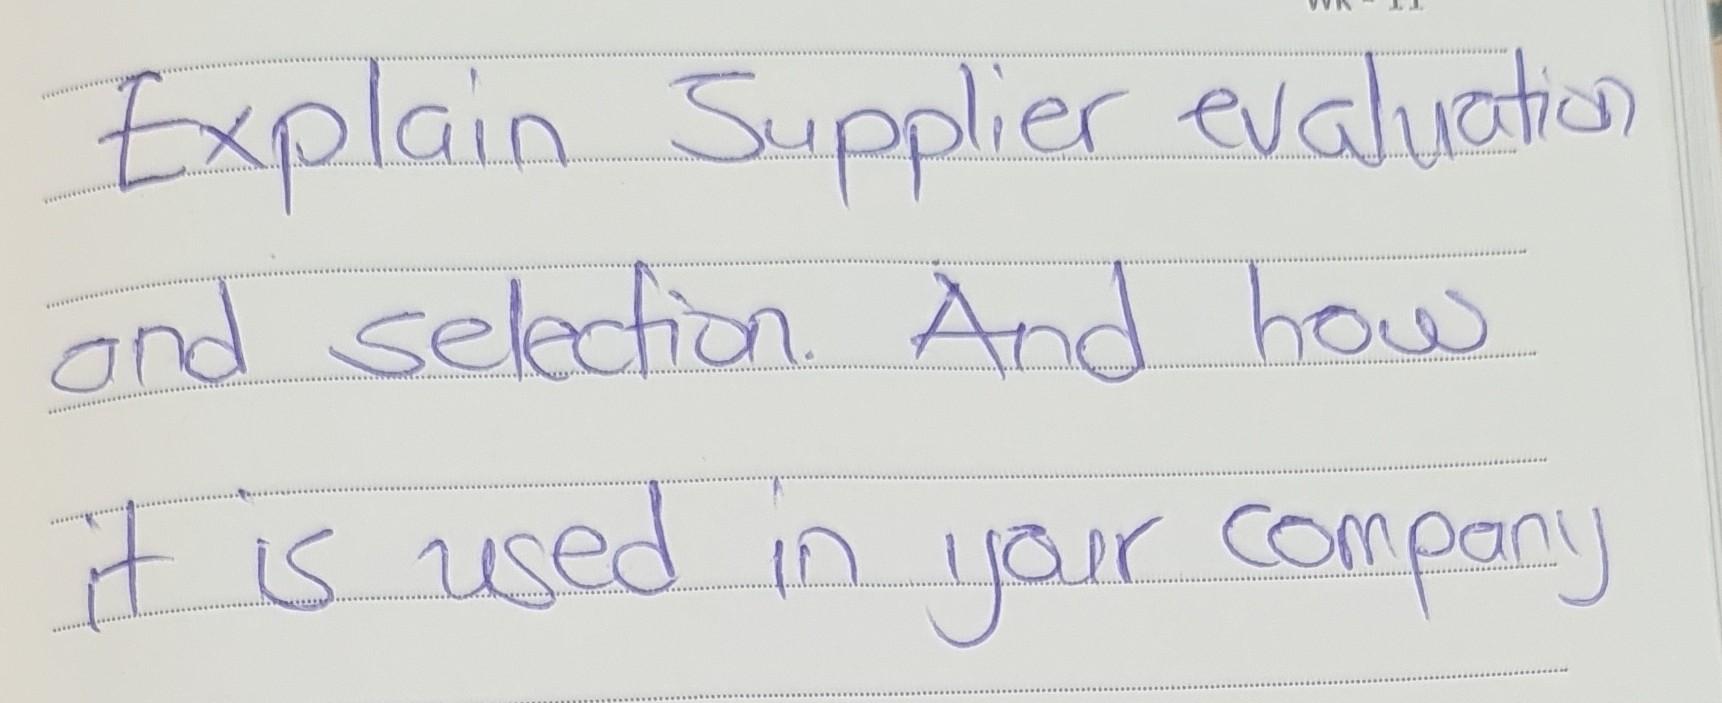 Explain Supplier evaluation
and selection. And how
it is used in your company